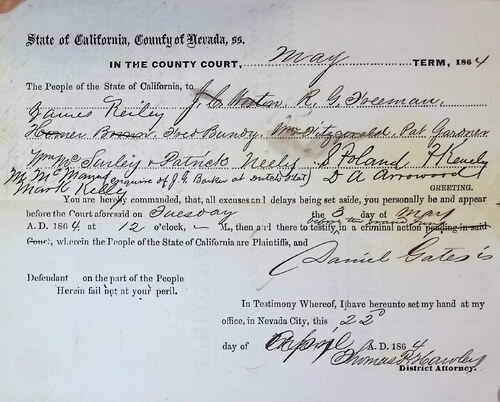 State of California, County of Nevada, ss.
IN THE COUNTY COURT, May TERM, 1864
The People of the State of California, to J. C. Weston, R. G. Freeman,
James Reiley
Homer Brown, Fred Bundy, Wm Fitzgerald, Pat Gardner
Wm Mc Surley & Patrick Neely S Poland F Kenely
Mc Manus enquire of J. G. Barker at Dutch Flat D A Arrowood
Mark Riley GREETING.
You are hereby commanded, that, all excuses and delays being set aside, you personally be and appear
before the Court aforesaid on Tuesday the 3 day of May
A. D. 1864 at 12 o'clock, M., then and there to testify in a criminal action pending in said
Court, wherein the People of the State of California are Plaintiffs, and
Daniel Gates is
Defendant on the part of the People
Herein fail not at your peril.
In Testimony Whereof, I have hereunto set my hand at my
office, in Nevada City, this 22d
day of April A. D. 1864
Thomas P. Hawley
District Attorney.